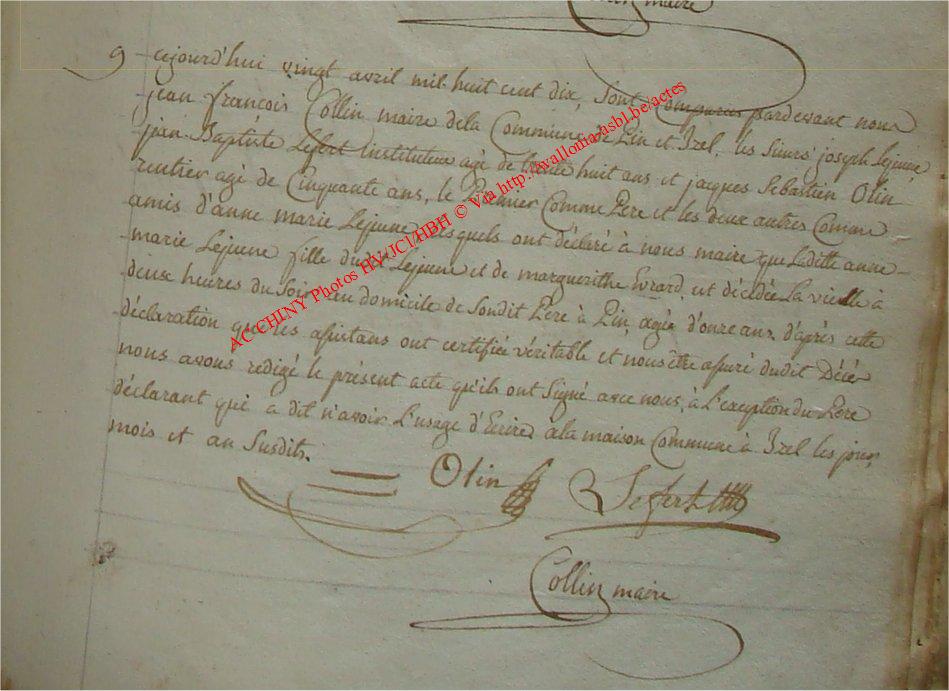 Collin maire
9 cejourd'hui vingt avril mil huit cent dix, Sont Comparus pardevant nous
jean françois Collin maire dela Commune de Pin et Izel, les Sieurs joseph Lejeune
jean Baptiste Lefert instituteur agé de trente huit ans et jacques Sebastien Olin
rentier agé de Cinquante ans, le Premier Comme Pere et les deux autres Comme
amis d'anne marie Lejeune, lesquels ont déclaré à nous maire que Laditte anne
marie Lejeune fille dudit Lejeune et de margueritthe Evrard, est décédée la vieille à
deux heures du Soir au domicile de Sondit Pere à Pin, agée d'onze ans, d'après cette
déclaration que les assistans ont certifiée véritable et nous être assuré dudit Décés
nous avons redigé le présent acte qu'ils ont Signé avec nous, à L'exception du Pere
déclarant qui a dit n'avoir L'usage d'Ecrire, a la maison Commune à Izel les jour,
mois et an Susdits.
Olin Lefert
Collin maire
ACCHINY Photos HV/JCJ/HBH © Via http://wallonia-asbl.be/actes